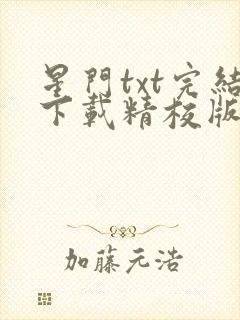 星門txt完結
下載精校版
加藤元浩